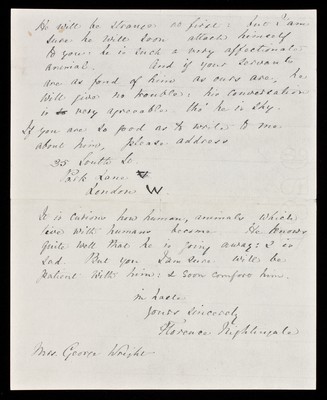 He will be strange at first: but I am
sure he will soon attach himself
to you: he is such a very affectionate
animal. And if your servants
are as fond of him as ours are, he
will give no trouble: his conversation
is very agreeable tho' he is shy.
If you are so good as to write to me
about him, please address
35 South St
Park Lane
London W
It is curious how human, animals which
live with humans become. He knows
quite well that he is going away: & is
sad. But you I am sure will be
patient with him: & soon comfort him.
in haste
yours sincerely
Florence Nightingale
Mrs. George Wright